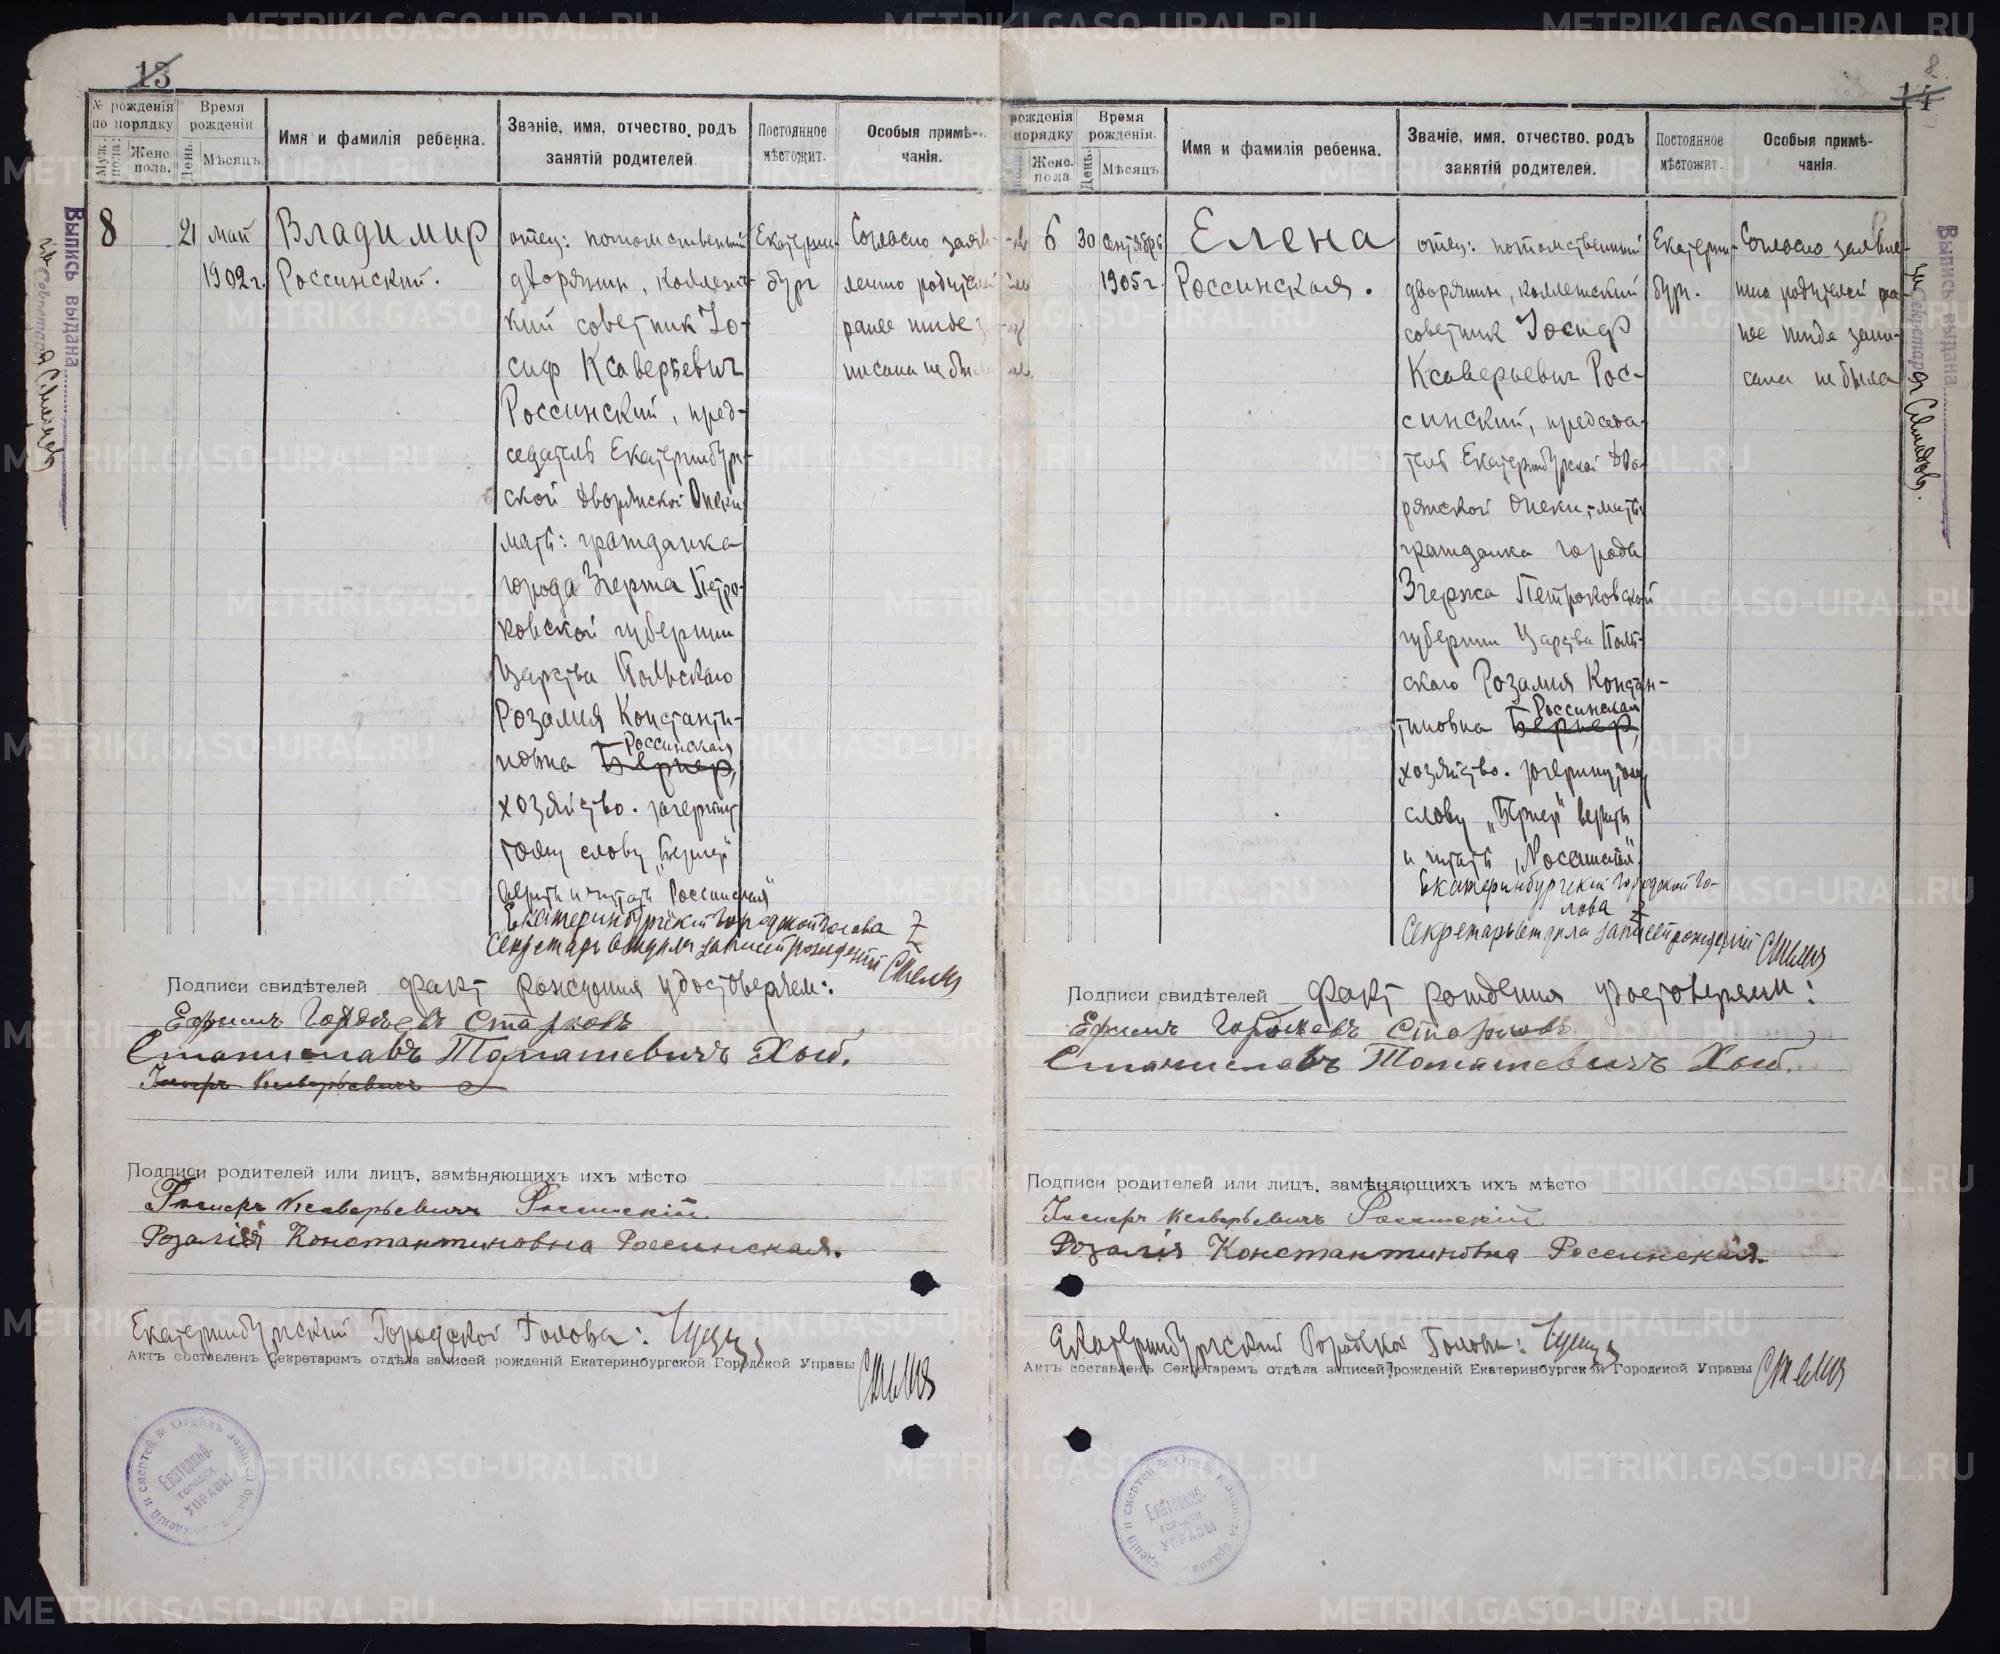 13
№ рожденія по порядку
Муж. пола.
Женс пола.
Время рожденіи
День.
Мѣсяцъ.
Имя и фамилія ребенка.
Званіе, имя, отчество, родъ занятій родителей.
Постоянное мѣстожит.
Особыя примѣчанія.
8
21
май
1902 г.
Владимир
Россинский.
отец: потомственный
дворянин, коллежс-
кий советник Іо-
сиф Ксаверьевич
Россинский, пред-
седатель Екатеринбург-
ской Дворянской Опеки
мать: гражданка
города Згержа Петро-
ковской губернии
Царства Польскаго
Розалия Константи-
Россинская
новна Бернер,
хозяйство. зачеркну-
тому слову „Бернер"
верить и читать „Россинская"
Екатеринбургскій Городской Голова
Секретарь отдела записей рожденій
Екатерин-
бург
Согласно заяв-
лению родителей
ранее нигде за-
писан не был.
Выпись выдана
Подписи свидѣтелей факт рождения удостоверяем:
Ефимъ Гордѣевъ Старковъ
Станиславъ Томашевичъ Хыб.
Іосифъ Ксаверьевичъ
Подписи родителей или лицъ, замѣняющихъ ихъ мѣсто
Іосифъ Ксаверьевичъ Россинскій
Розалія Константиновна Россинская.
Екатеринбургский Городской Голова:
Актъ составленъ Секретаремъ отдѣла записей рожденій Екатеринбургской Городской Управы
Отдѣлъ записи браковъ, рожденій и смертей
Екатеринб.
городск.
УПРАВЫ
8.
14
рожденія порядку
Женс. пола
Время рожденія.
День.
Мѣсяцъ.
Имя и фамилія ребенка.
Званіе, имя, отчество, родъ занятій родителей.
Постоянное мѣстожит.
Особыя примѣчанія.
6
30
сентябрь
1905 г.
Елена
Россинская.
отец: потомственный
дворянин, коллежский
советник Іосиф
Ксаверьевич Рос-
синский, председа-
тель Екатеринбургской Дво-
рянской Опеки, мать:
гражданка города
Згержа Петроковской
губернии Царства Поль-
скаго Розалия Констан-
Россинская
тиновна Бернер,
хозяйство. зачеркнутому
слову „Бернер" верить
и читать „Россинская".
Екатеринбургскій Городской Го-
лова
Секретарь отдѣла записей рожденій
Екатерин-
бург.
Согласно заявле-
нию родителей ра-
нее нигде запи-
сана не была
Выпись выдана
Подписи свидѣтелей факт рождения удостоверяем:
Ефимъ Гордѣевъ Старковъ
Станиславъ Томашевичъ Хыб.
Подписи родителей или лицъ, замѣняющихъ ихъ мѣсто
Іосифъ Ксаверьевичъ Россинскій
Розалія Константиновна Россинская.
Екатеринбургский Городской Голова:
Актъ составленъ Секретаремъ отдѣла записей рожденій Екатеринбургской Городской Управы
Отдѣлъ записи браковъ, рожденій и смертей
Екатеринб.
городск.
УПРАВЫ
METRIKI.GASO-URAL.RU